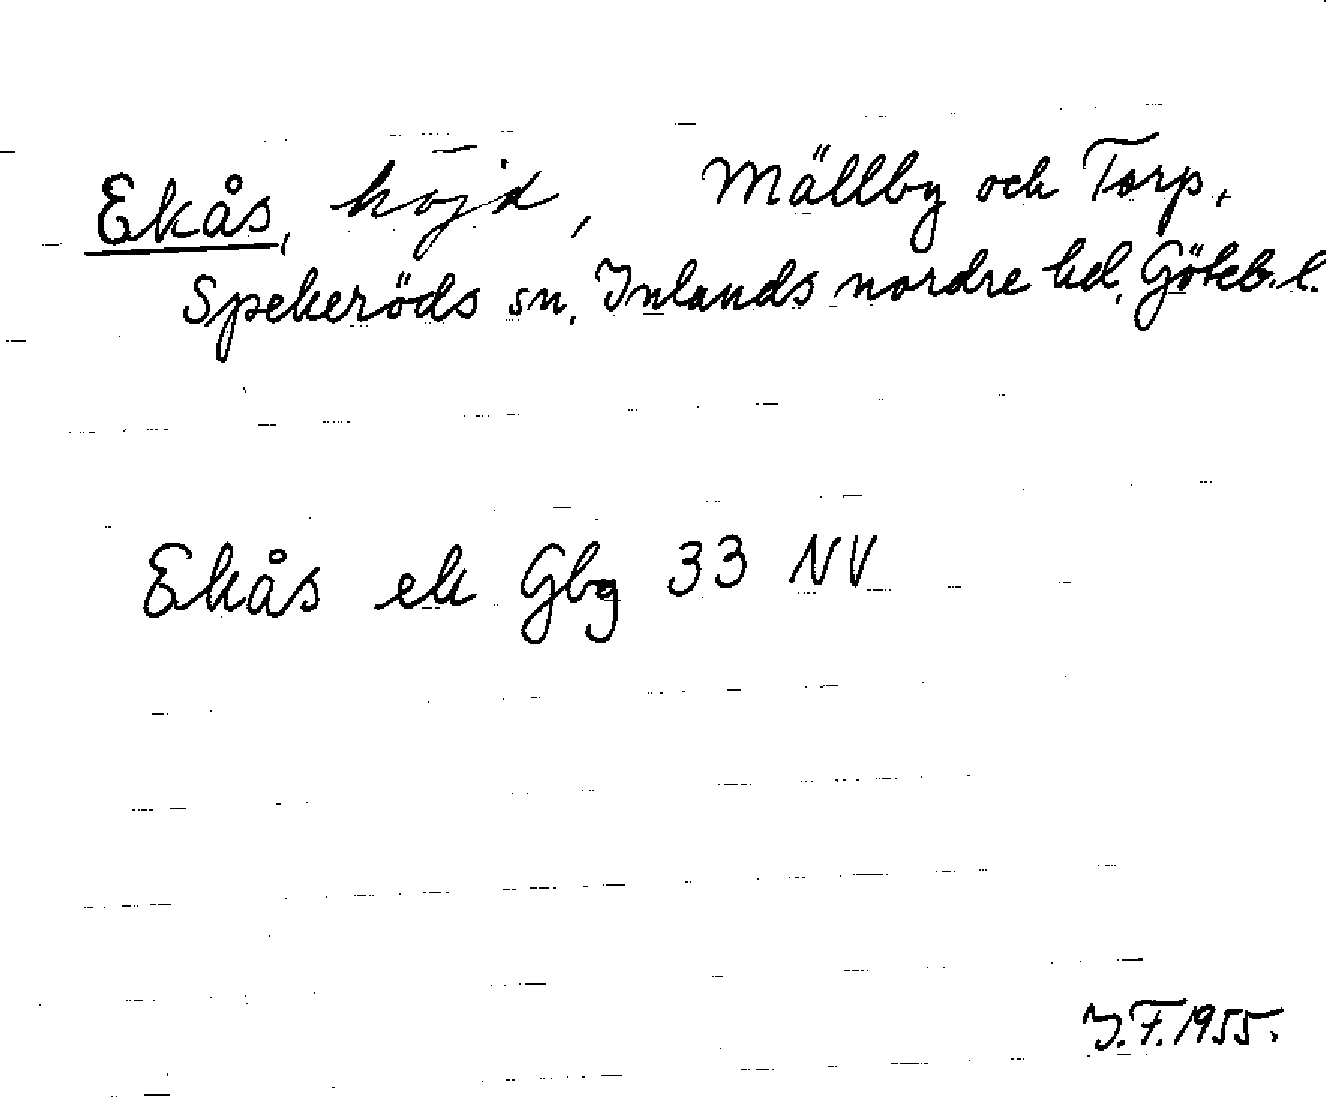 Ekås, höjd, Mällby och Torp,
Spekeröds sn, Inlands nordre hd, Göteb. l.
Ekås ek Gbg 33 NV
I.F. 1955.